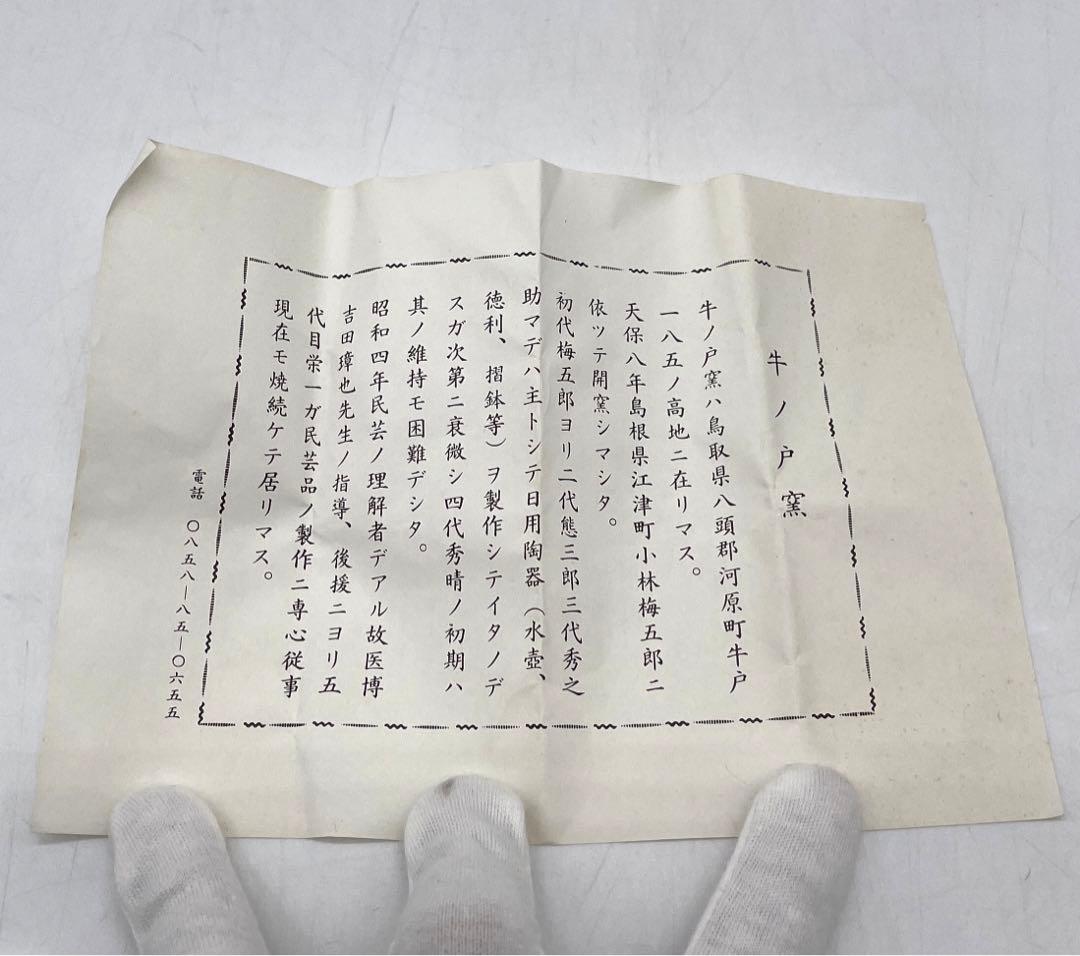 牛ノ戸窯
牛ノ戸窯ハ鳥取県八頭郡河原町牛戸
一八五ノ高地ニ在リマス。
天保八年島根県江津町小林梅五郎ニ
依ッテ開窯シマシタ。
初代梅五郎ヨリ二代態三郎三代秀之
助マデハ主トシテ日用陶器（水壺、
徳利、摺鉢等）ヲ製作シテイタノデ
スガ次第ニ衰微シ四代秀晴ノ初期ハ
其ノ維持モ困難デシタ。
昭和四年民芸ノ理解者デアル故医博
吉田璋也先生ノ指導、後援ニヨリ五
代目栄一ガ民芸品ノ製作ニ専心従事
現在モ焼続ケテ居リマス。
電話 〇八五八―八五―〇六五五